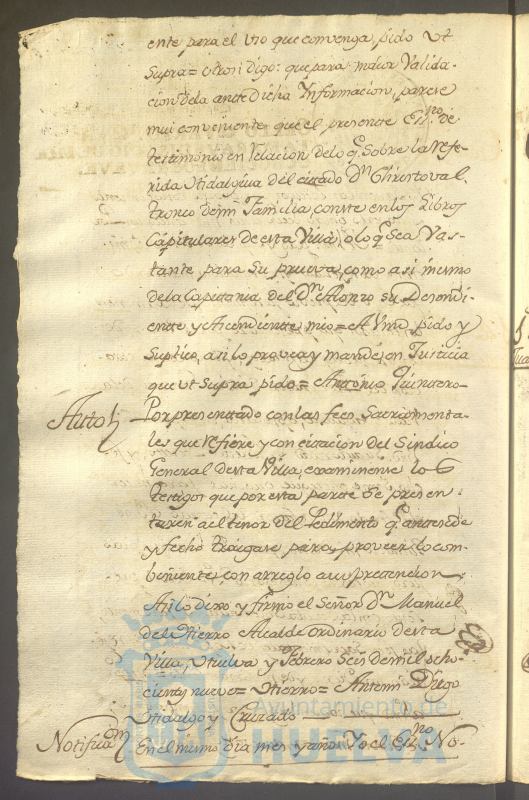 ente para el vso que convenga, pido Vt
Supra= otrosi digo: que para maior Valida-
cion dela ante dicha Informacion, parese
mui conveniente que el presente Esno. de
testimonio en relacion delo q. Sobre la refe-
rida Hidalguia del citado Dn. Christoval
tronco de mi Familia, conste en los Libros
Capitulares de esta Villa, o lo q. Sea Vas-
tante para su prueva, como asi mismo
dela Capitania del Dn. Alonso su Desendi-
ente y Asendiente mio= A Vmd pido y
Suplico, asi lo provea y mande, en Justicia
que Vt Supra pido= Antonio Quintero-
Auto
Por presentado con las fees Sacramenta-
les que refiere y con citacion del Sindico
General desta Villa, examinense los
testigos que por esta parte se presen-
taren al tenor del Pedimento q. antesede
y fecho traigase para proveer lo com-
beniente, con arreglo a su pretencion
Asi lo dixo y firmo el Señor Dn. Manuel
de Hierro Alcalde ordinario desta
Villa, Huelva y Febrero Seis de mil ocho-
cientos nueve= Hierro= Antemi Diego
Hidalgo y Cruzado
Notificaon
En el mismo dia mes y año: Yo el Esno. No-
Ayuntamiento de
HUELVA